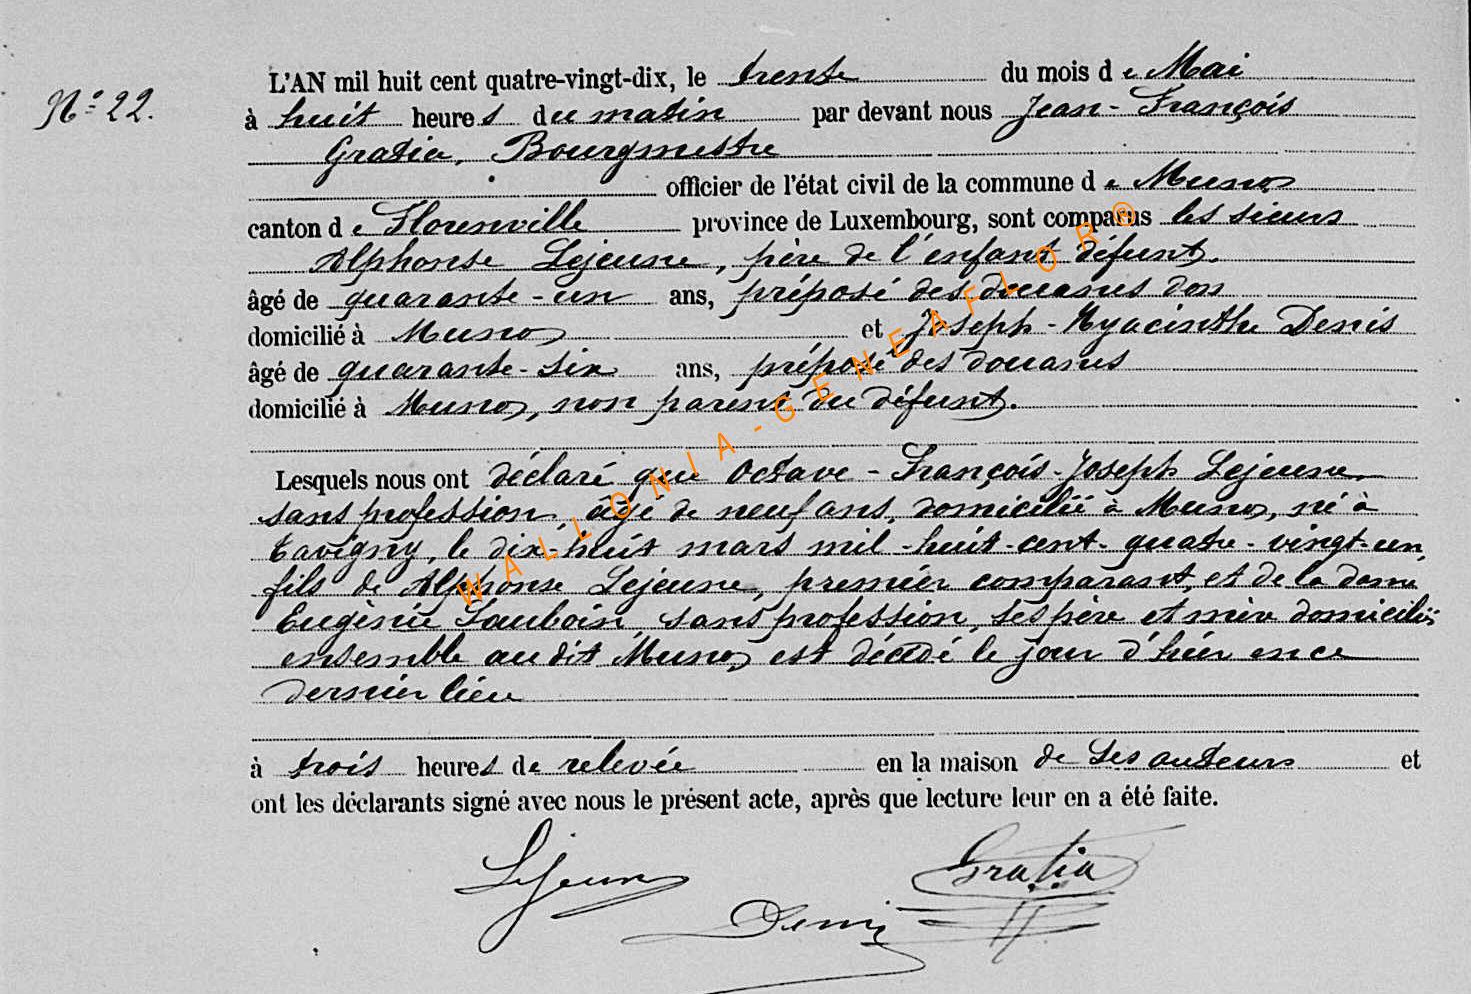 N° 22.
L'AN mil huit cent quatre-vingt-dix, le trente du mois de Mai
à huit heures du matin par devant nous Jean-François
Gratia, Bourgmestre
officier de l'état civil de la commune de Muno
canton de Florenville province de Luxembourg, sont comparus les sieurs
Alphonse Lejeune, père de l'enfant défunt.
âgé de quarante-un ans, préposé des douanes
domicilié à Muno et Joseph-Hyacinthe Denis
âgé de quarante-six ans, préposé des douanes
domicilié à Muno, non parent du défunt.
Lesquels nous ont déclaré que Octave-François-Joseph Lejeune,
sans profession, âgé de neuf ans, domicilié à Muno, né à
Tavigny, le dix-huit mars mil-huit-cent-quatre-vingt-un,
fils de Alphonse Lejeune, premier comparant, et de la dame
Eugénie Lauboin, sans profession, ses père et mère domiciliés
ensemble au dit Muno, est décédé le jour d'hier en ce
dernier lieu
à trois heures de relevée en la maison de ses auteurs et
ont les déclarants signé avec nous le présent acte, après que lecture leur en a été faite.
Lejeune
Gratia
Denis
WALLONIA-GENEAFLOR®